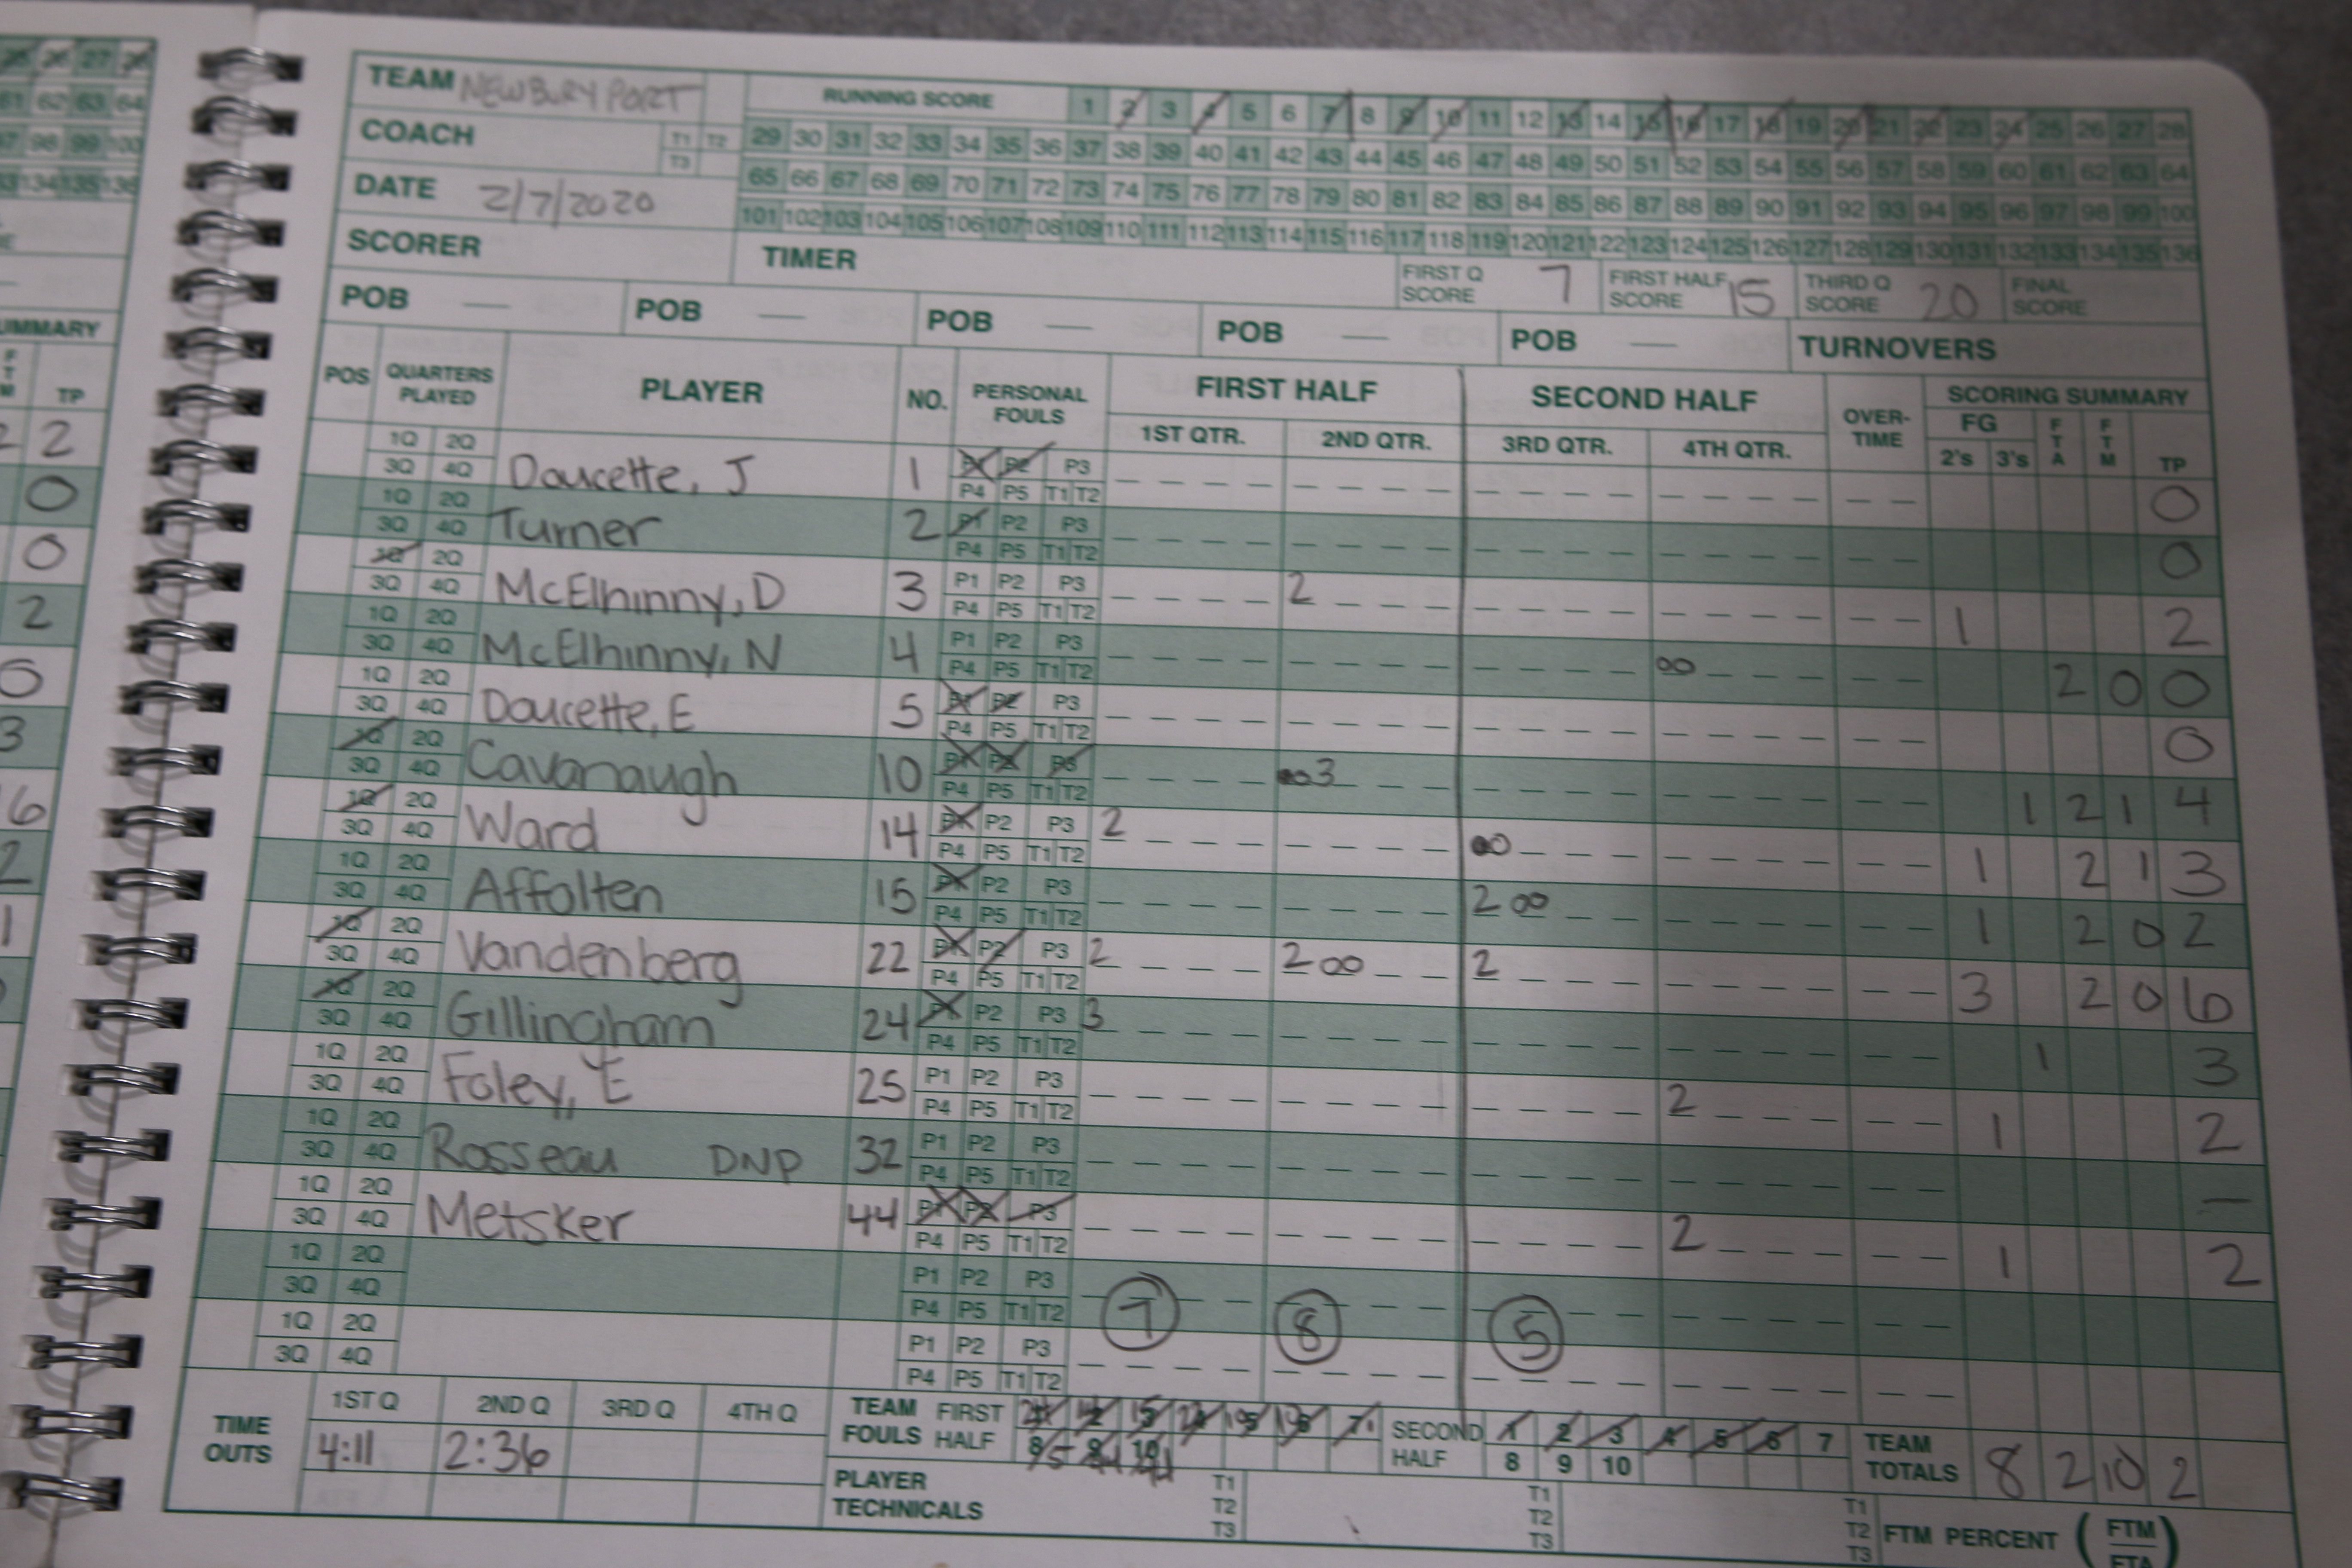 TEAM NEWBURYPORT RUNNING SCORE 1 2 3 4 5 6 7 8 9 10 11 12 13 14 15 16 17 18 19 20 21 22 23 24 25 26 27 28
COACH T1 T2 T3 29 30 31 32 33 34 35 36 37 38 39 40 41 42 43 44 45 46 47 48 49 50 51 52 53 54 55 56 57 58 59 60 61 62 63 64
DATE 2/7/2020 65 66 67 68 69 70 71 72 73 74 75 76 77 78 79 80 81 82 83 84 85 86 87 88 89 90 91 92 93 94 95 96 97 98 99 100
101 102 103 104 105 106 107 108 109 110 111 112 113 114 115 116 117 118 119 120 121 122 123 124 125 126 127 128 129 130 131 132 133 134 135 136
SCORER TIMER FIRST Q SCORE 7 FIRST HALF SCORE 15 THIRD Q SCORE 20 FINAL SCORE
POB — POB — POB — POB — POB — TURNOVERS
POS QUARTERS PLAYED PLAYER NO. PERSONAL FOULS FIRST HALF SECOND HALF OVER-TIME SCORING SUMMARY
1ST QTR. 2ND QTR. 3RD QTR. 4TH QTR. FG 2's 3's FTA FTM TP
1Q 2Q 3Q 4Q Doucette, J 1 P1 P2 P3 P4 P5 T1 T2 0
1Q 2Q 3Q 4Q Turner 2 P1 P2 P3 P4 P5 T1 T2 0
1Q 2Q 3Q 4Q McElhinny, D 3 P1 P2 P3 P4 P5 T1 T2 2 1 2
1Q 2Q 3Q 4Q McElhinny, N 4 P1 P2 P3 P4 P5 T1 T2 00 2 0 0
1Q 2Q 3Q 4Q Doucette, E 5 P1 P2 P3 P4 P5 T1 T2 0
1Q 2Q 3Q 4Q Cavanaugh 10 P1 P2 P3 P4 P5 T1 T2 ●03 1 2 1 4
1Q 2Q 3Q 4Q Ward 14 P1 P2 P3 P4 P5 T1 T2 2 ●0 1 2 1 3
1Q 2Q 3Q 4Q Affolten 15 P1 P2 P3 P4 P5 T1 T2 2 00 1 2 0 2
1Q 2Q 3Q 4Q Vandenberg 22 P1 P2 P3 P4 P5 T1 T2 2 2 00 2 3 2 0 6
1Q 2Q 3Q 4Q Gillingham 24 P1 P2 P3 P4 P5 T1 T2 3 1 3
1Q 2Q 3Q 4Q Foley, E 25 P1 P2 P3 P4 P5 T1 T2 2 1 2
1Q 2Q 3Q 4Q Rosseau DNP 32 P1 P2 P3 P4 P5 T1 T2 —
1Q 2Q 3Q 4Q Metsker 44 P1 P2 P3 P4 P5 T1 T2 2 1 2
1Q 2Q 3Q 4Q P1 P2 P3 P4 P5 T1 T2 7 8 5
1Q 2Q 3Q 4Q P1 P2 P3 P4 P5 T1 T2
TIME OUTS 1ST Q 2ND Q 3RD Q 4TH Q
4:11 2:36
TEAM FOULS FIRST HALF 7 8 9 10 SECOND HALF 1 2 3 4 5 6 7 8 9 10 TEAM TOTALS 8 2 10 2
PLAYER TECHNICALS T1 T2 T3 T1 T2 T3 T1 T2 T3 FTM PERCENT (FTM FTA)
27
61 62 63 64
97 98 99 100
134 135 136
SUMMARY
TP
2
0
0
2